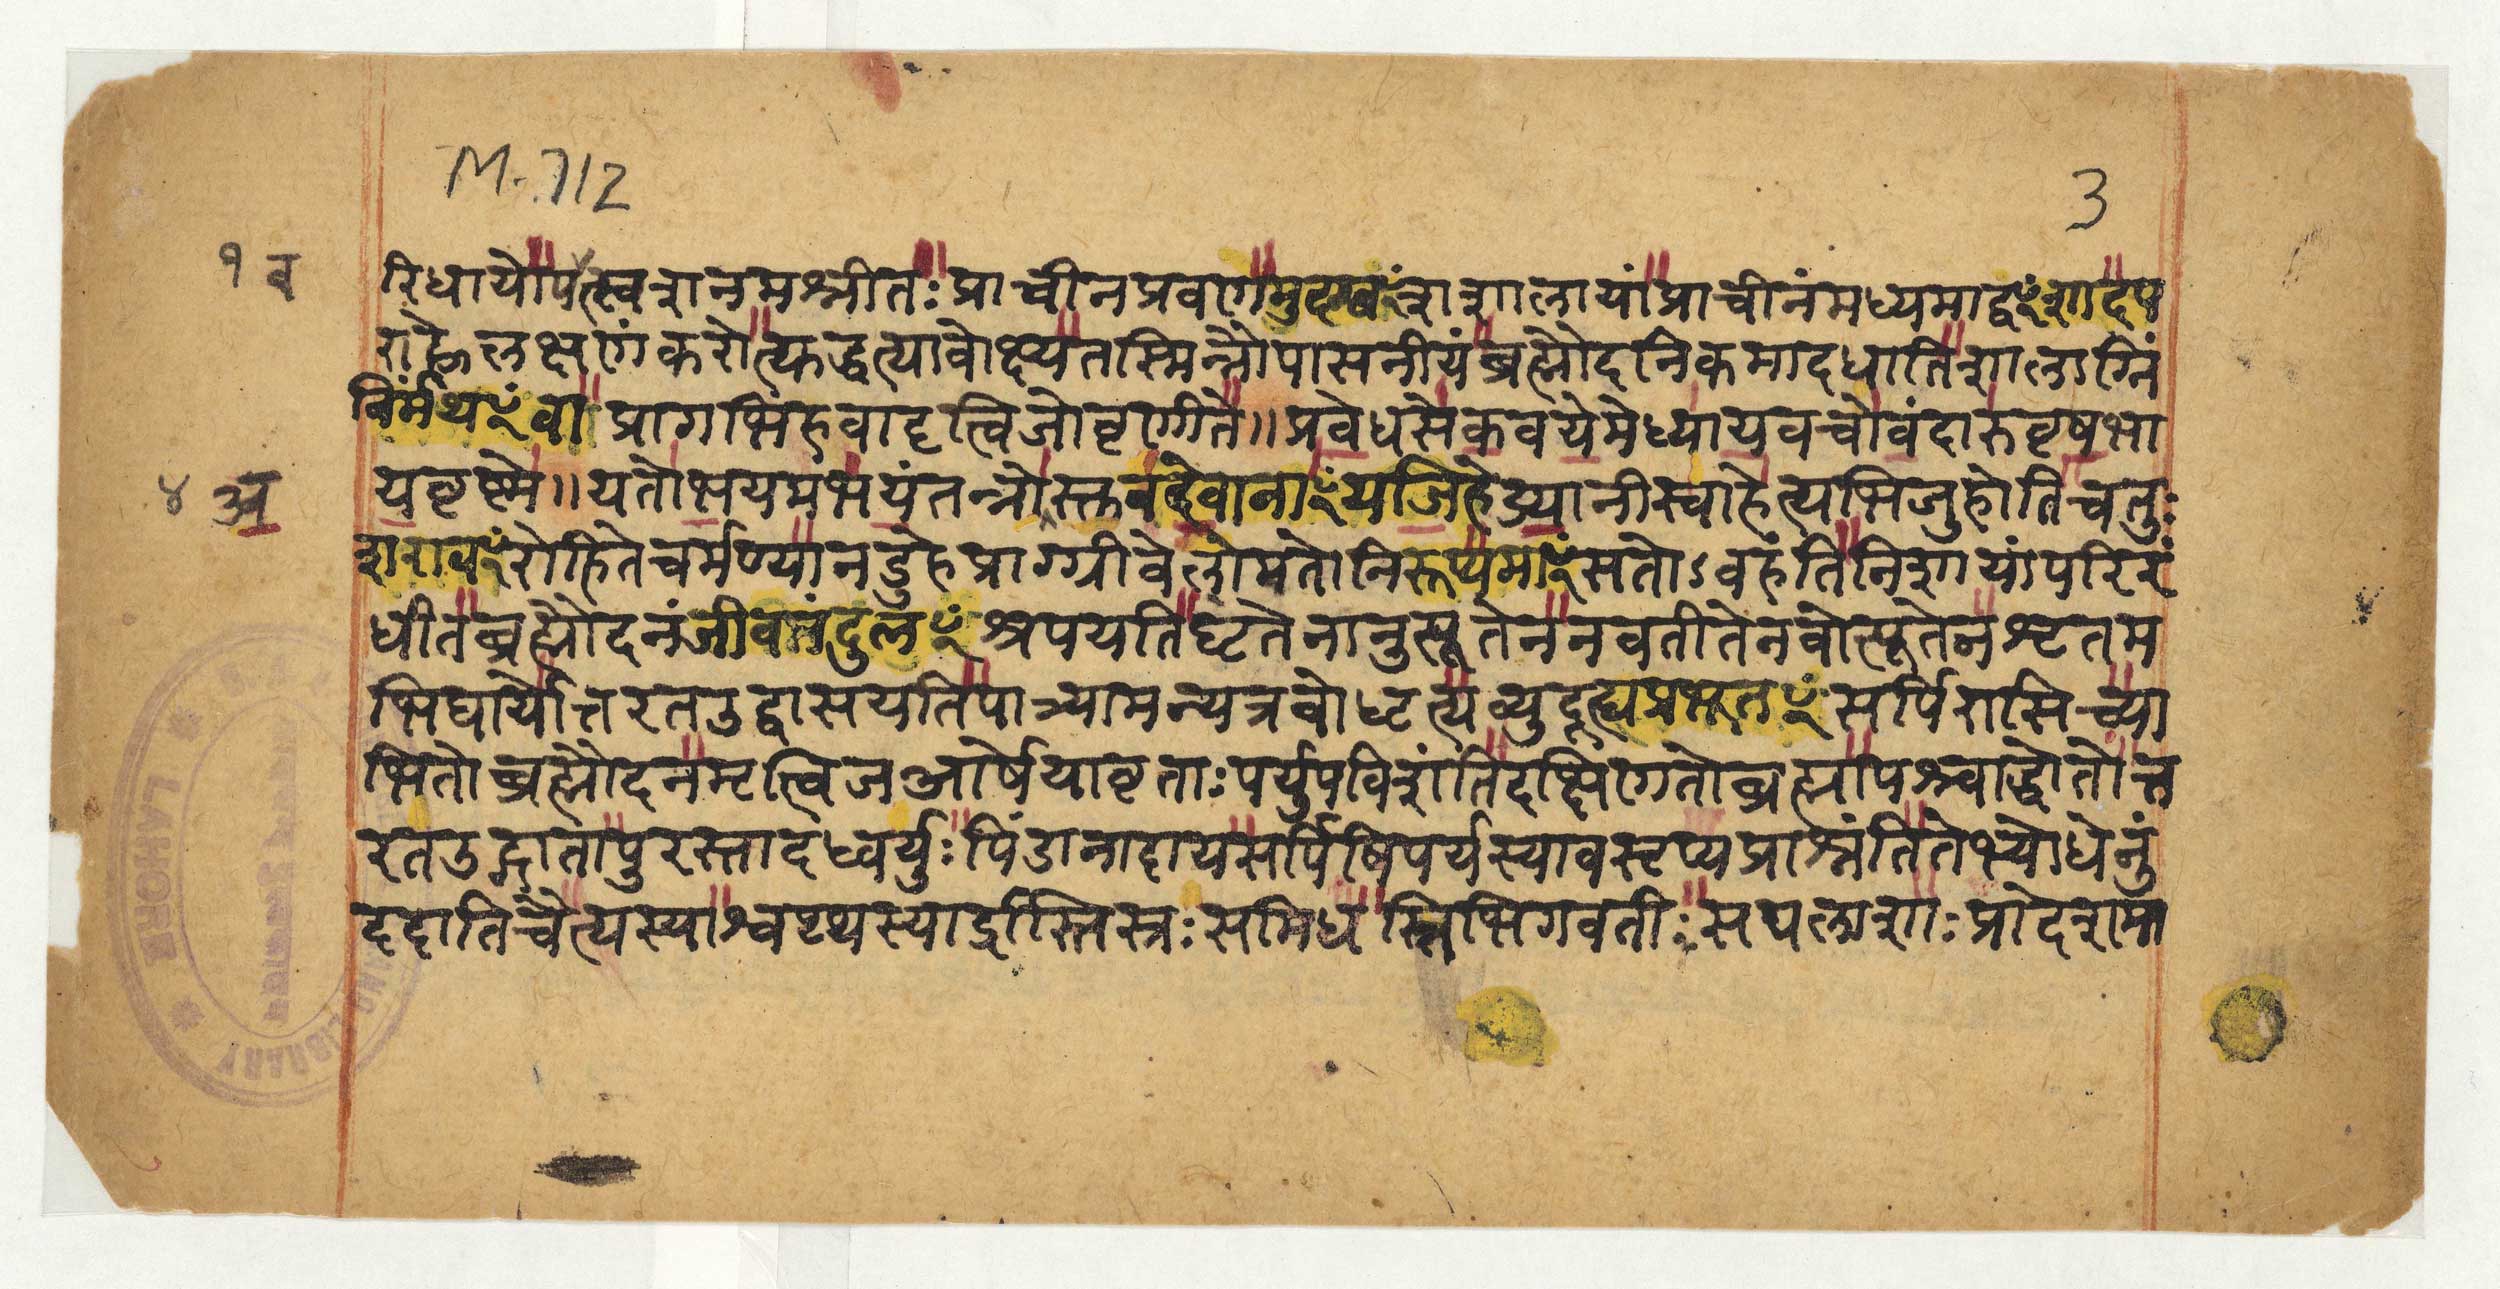 M. 712
3
१ व
रिधायोपत्स्वशनमश्नीतः प्राचीनप्रवणमुदग्वꣳशशालायांप्राचीनंमध्यमाद्वꣳशादप
राह्णेलक्षणंकरोत्यद्धत्यावोक्ष्यतस्मिन्नौपासनीयंब्रह्मौदनिकमादधातिशालाग्निं
निर्मथꣳवाप्रागभिंहवादृत्विजोवृणीते॥प्रवेधसेकवयेमेध्यायवचोवंदारुवृषभा
४ अ
यवृष्मे॥यतोभयमभयंतन्नोस्त्तवदेवानाꣳयजिहेड्यानीस्वाहेत्यभिजुहोतिचतुः
शरावꣳरोहितेचर्मण्यानडुहेप्राग्ग्रीवेलोमतोनिरूप्यमाꣳसतोऽवहंतिनिशायांपरिरं
धीतब्रह्मौदनंजीवतंदुलꣳश्रपयतिघृतेनानुत्पूतेननवतीतेनवोत्पूतेनशृतम
भिघार्योत्तरतउद्वासयतिपात्र्यामन्यत्रवोधृत्यव्युदूह्यप्रभूतꣳसर्पिरासिच्या
भितोब्रह्मौदनमृत्विजआर्षेयावृताःपर्युपविशंतिदक्षिणतोब्रह्मापश्चाद्धोतोत्त
रतउद्गातापुरस्तादध्वर्युःपिंडानादायसर्पिषिपर्यस्यावसृप्यप्राश्नंतितेभ्योधेनुं
ददातिचैत्यस्याश्वत्थस्यार्द्रास्तिस्त्रःसमिधस्तिभिगवतीःसपलाशाःप्रादेशमा
LAHORE
LIBRARY